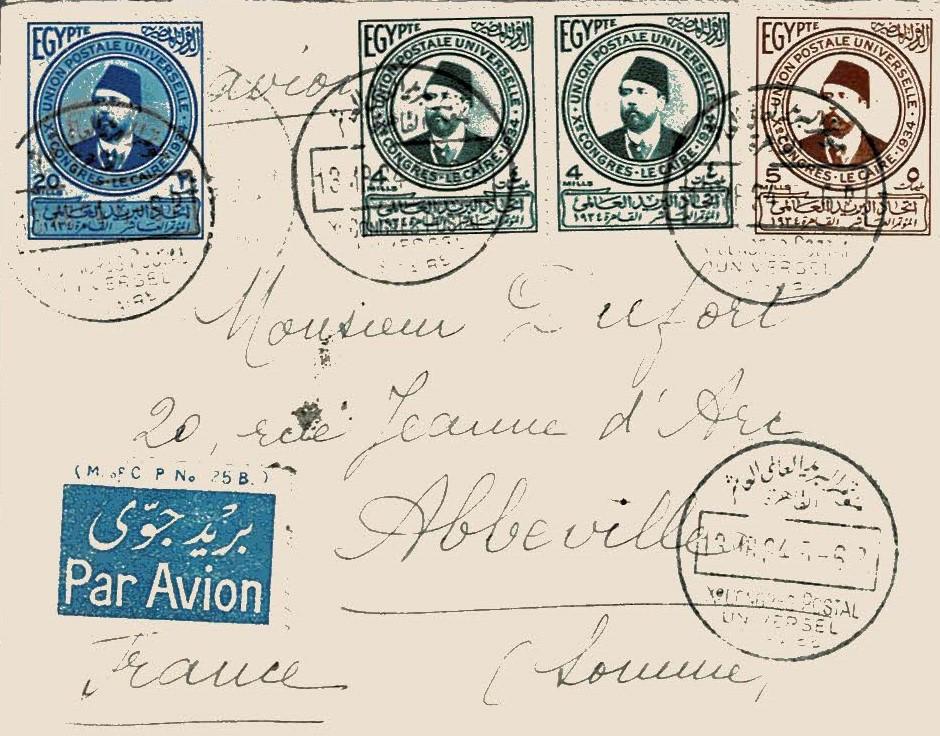 EGYPTE الدولة المصرية
UNION POSTALE UNIVERSELLE
Xe CONGRES · LE CAIRE · 1934
20
اتحاد البريد العالمي
المؤتمر العاشر القاهرة ١٩٣٤
avion
EGYPTE الدولة المصرية
UNION POSTALE UNIVERSELLE
Xe CONGRES · LE CAIRE · 1934
4
اتحاد البريد العالمي
المؤتمر العاشر القاهرة ١٩٣٤
EGYPTE الدولة المصرية
UNION POSTALE UNIVERSELLE
Xe CONGRES · LE CAIRE · 1934
4 MILLS ٤ مليمات
اتحاد البريد العالمي
المؤتمر العاشر القاهرة ١٩٣٤
EGYPTE الدولة المصرية
UNION POSTALE UNIVERSELLE
Xe CONGRES · LE CAIRE · 1934
5 MILLS ٥ مليمات
اتحاد البريد العالمي
المؤتمر العاشر القاهرة ١٩٣٤
UNIVERSEL
Monsieur Dufort
20, rue Jeanne d'Arc
Abbeville
(Somme)
France
(M. of C. P. No 25 B.)
بريد جوي
Par Avion
القاهرة
Xe CONGRES POSTAL
UNIVERSEL